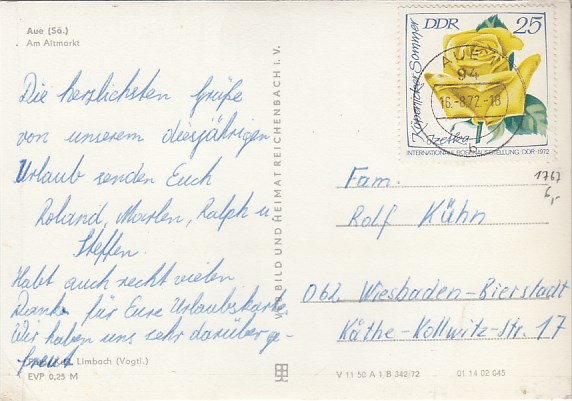 Aue (Sa.)
Am Altmarkt
Die herzlichsten Grüße
von unserem diesjährigen
Urlaub senden Euch
Roland, Marlen, Ralph u.
Steffen.
Habt auch recht vielen
Dank für Eure Urlaubskarte.
Wir haben uns sehr darüber ge-
freut
Limbach (Vogtl.)
EVP 0,25 M
VEB BILD UND HEIMAT REICHENBACH I. V.
DDR 25
Köpenicker Sommer
Izetka
INTERNATIONALE ROSENAUSSTELLUNG DDR 1972
AUE 1
94
16.-8.72-18
b
1762
6,-
Fam.
Rolf Kühn
062 Wiesbaden-Bierstadt
Käthe-Kollwitz-Str. 17
V 11 50 A 1/B 342/72
01 14 02 045